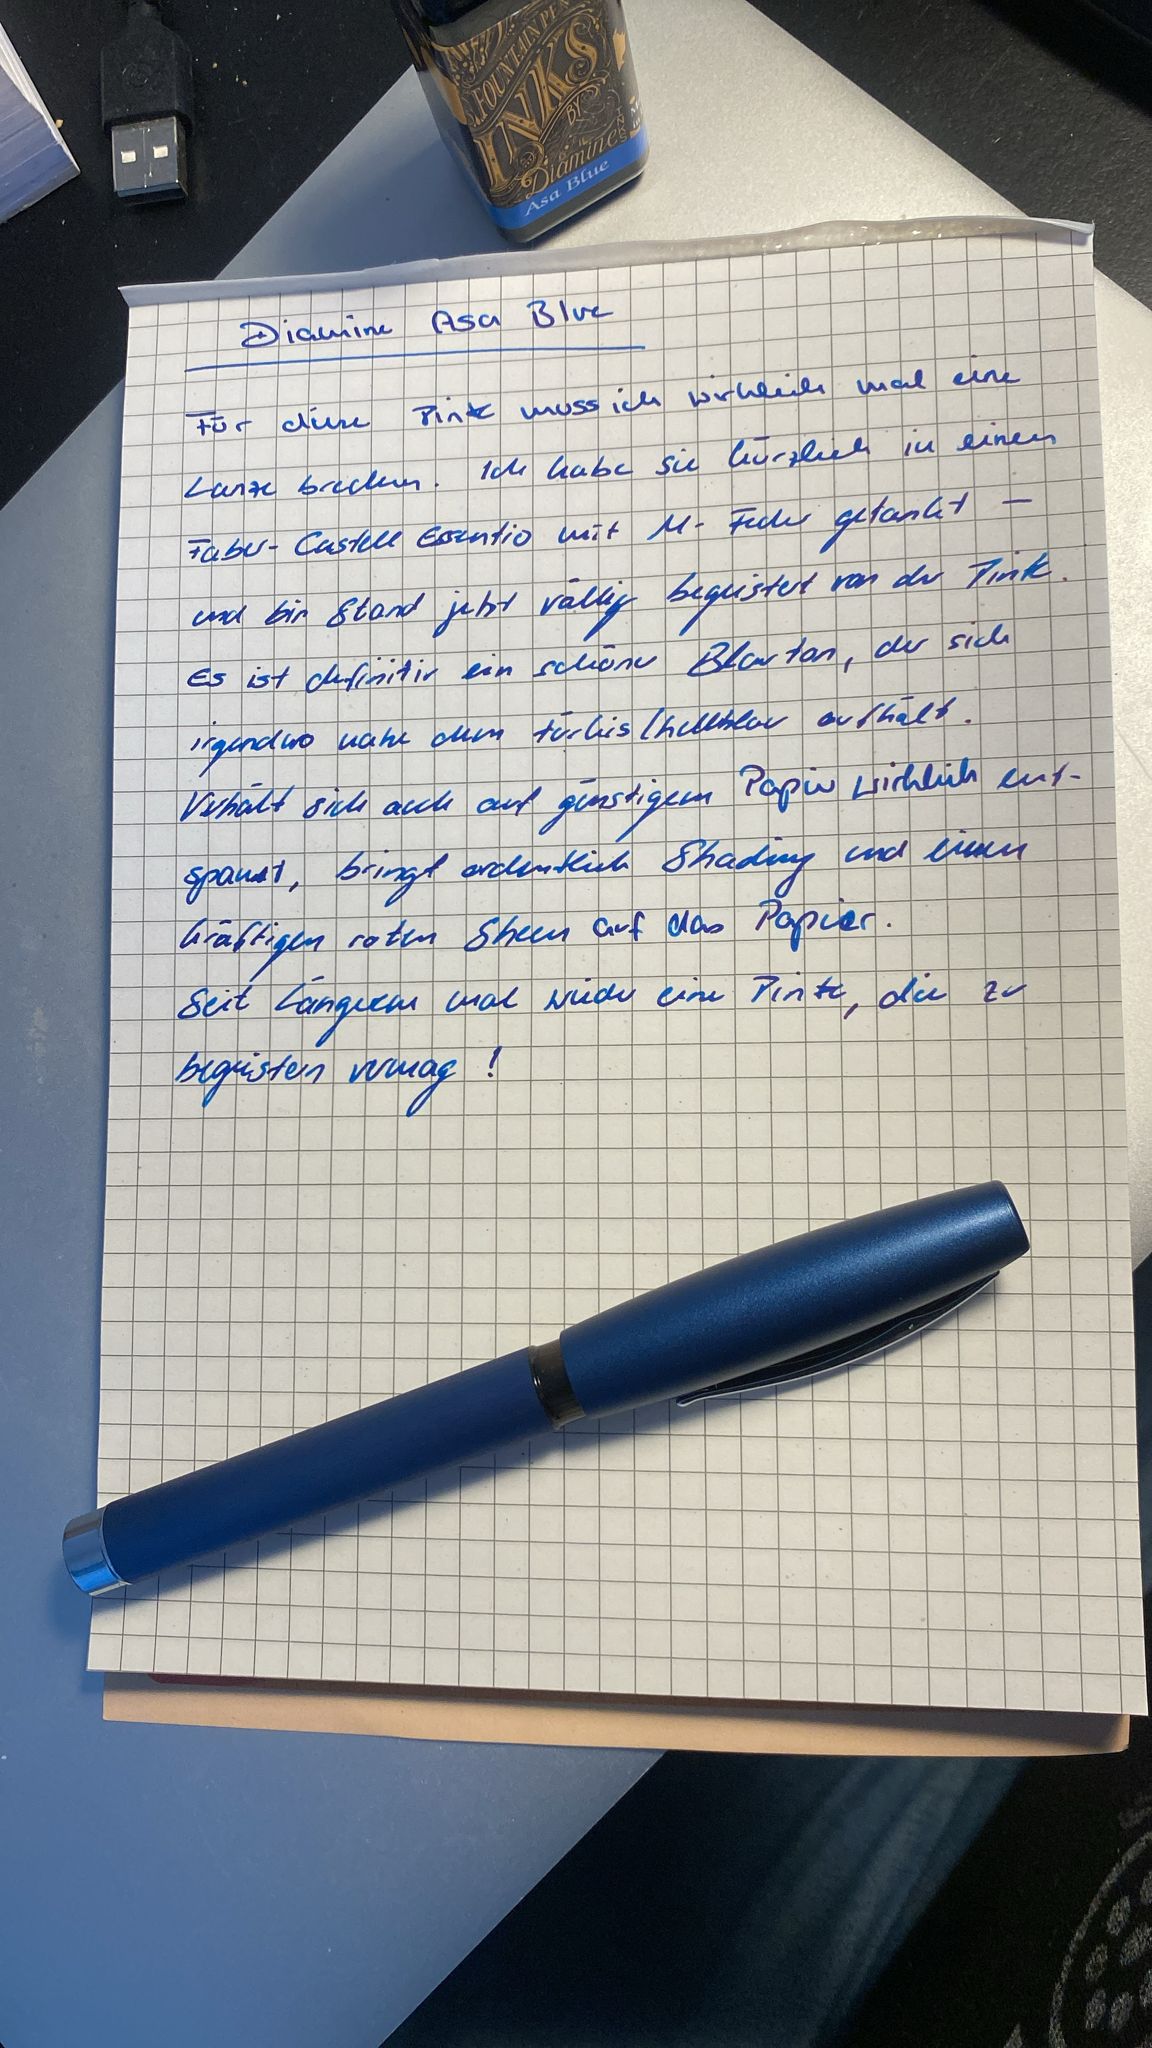 FOUNTAIN PEN
INKS
BY
Diamine
Asa Blue
Diamine Asa Blue
Für diese Tinte muss ich wirklich mal eine
Lanze brechen. Ich habe sie kürzlich in einen
Faber-Castell Essentio mit M-Feder getankt –
und bin Stand jetzt völlig begeistert von der Tinte.
Es ist definitiv ein schöner Blauton, der sich
irgendwo nahe dem türkis/hellblau aufhält.
Verhält sich auch auf günstigem Papier wirklich ent-
spannt, bringt ordentlich Shading und einen
kräftigen roten Sheen auf das Papier.
Seit Längerem mal wieder eine Tinte, die zu
begeistern vermag!